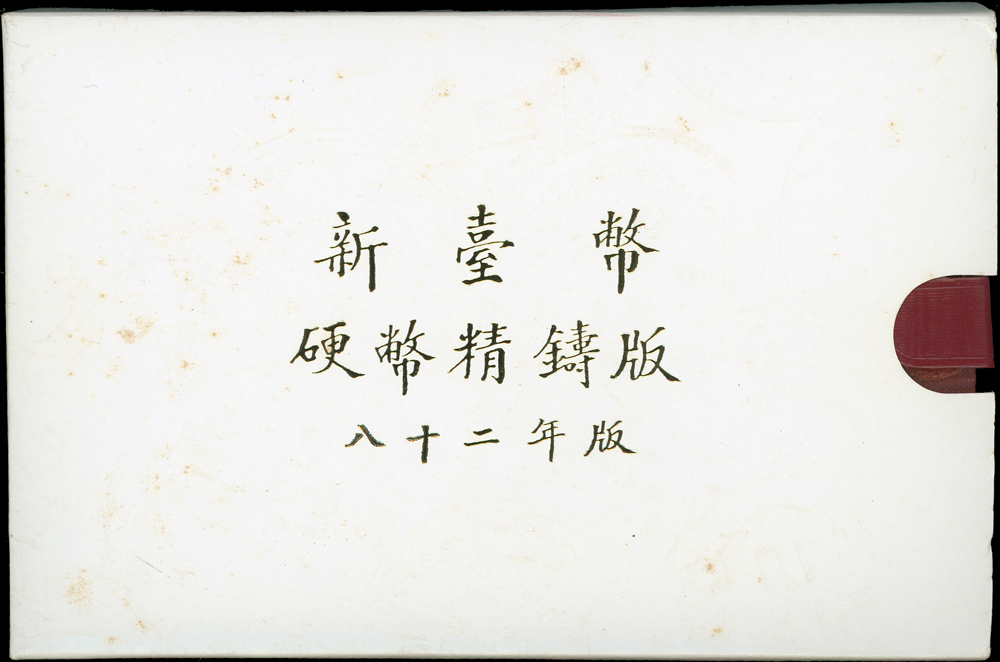 新臺幣
硬幣精鑄版
八十二年版